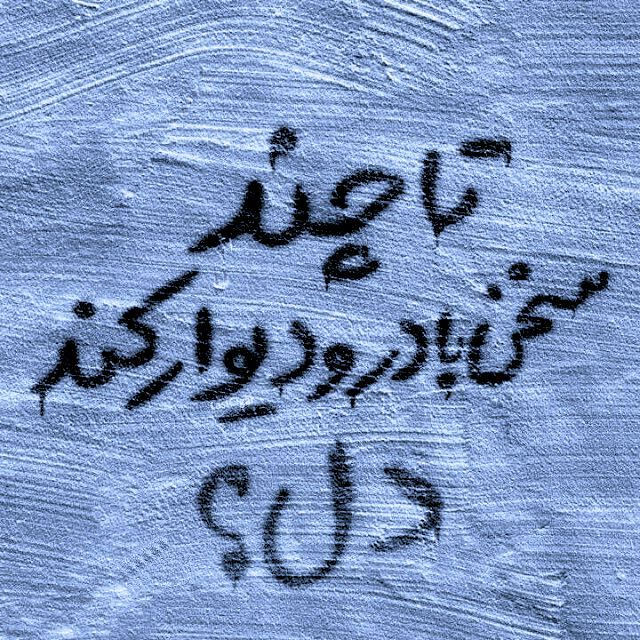 تا چند
سخن با در و دیوار کند
دل؟